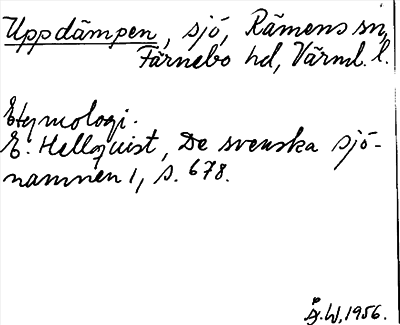 Uppdämpen, sjö, Rämens sn,
Färnebo hd, Värml. l.
Etymologi.
E. Hellquist, De svenska sjö-
namnen 1, s. 678.
Å.W, 1956.